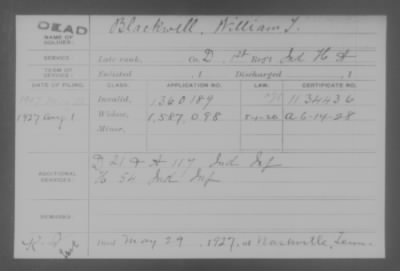 DEAD
NAME OF SOLDIER: Blackwell, William T.
SERVICE: Late rank, Co. D, 1st Reg't Ind H A
TERM OF SERVICE: Enlisted , 1 Discharged , 1
DATE OF FILING. CLASS. APPLICATION NO. LAW. CERTIFICATE NO.
Invalid, 1360189 1134436
1927 Aug 1 Widow, 1,587,098 5-1-20 A 6-14-28
Minor,
ADDITIONAL SERVICES: D 21 & A 117 Ind Inf
H 54 Ind Inf
REMARKS:
Died May 29, 1927, at Nashville, Tenn.